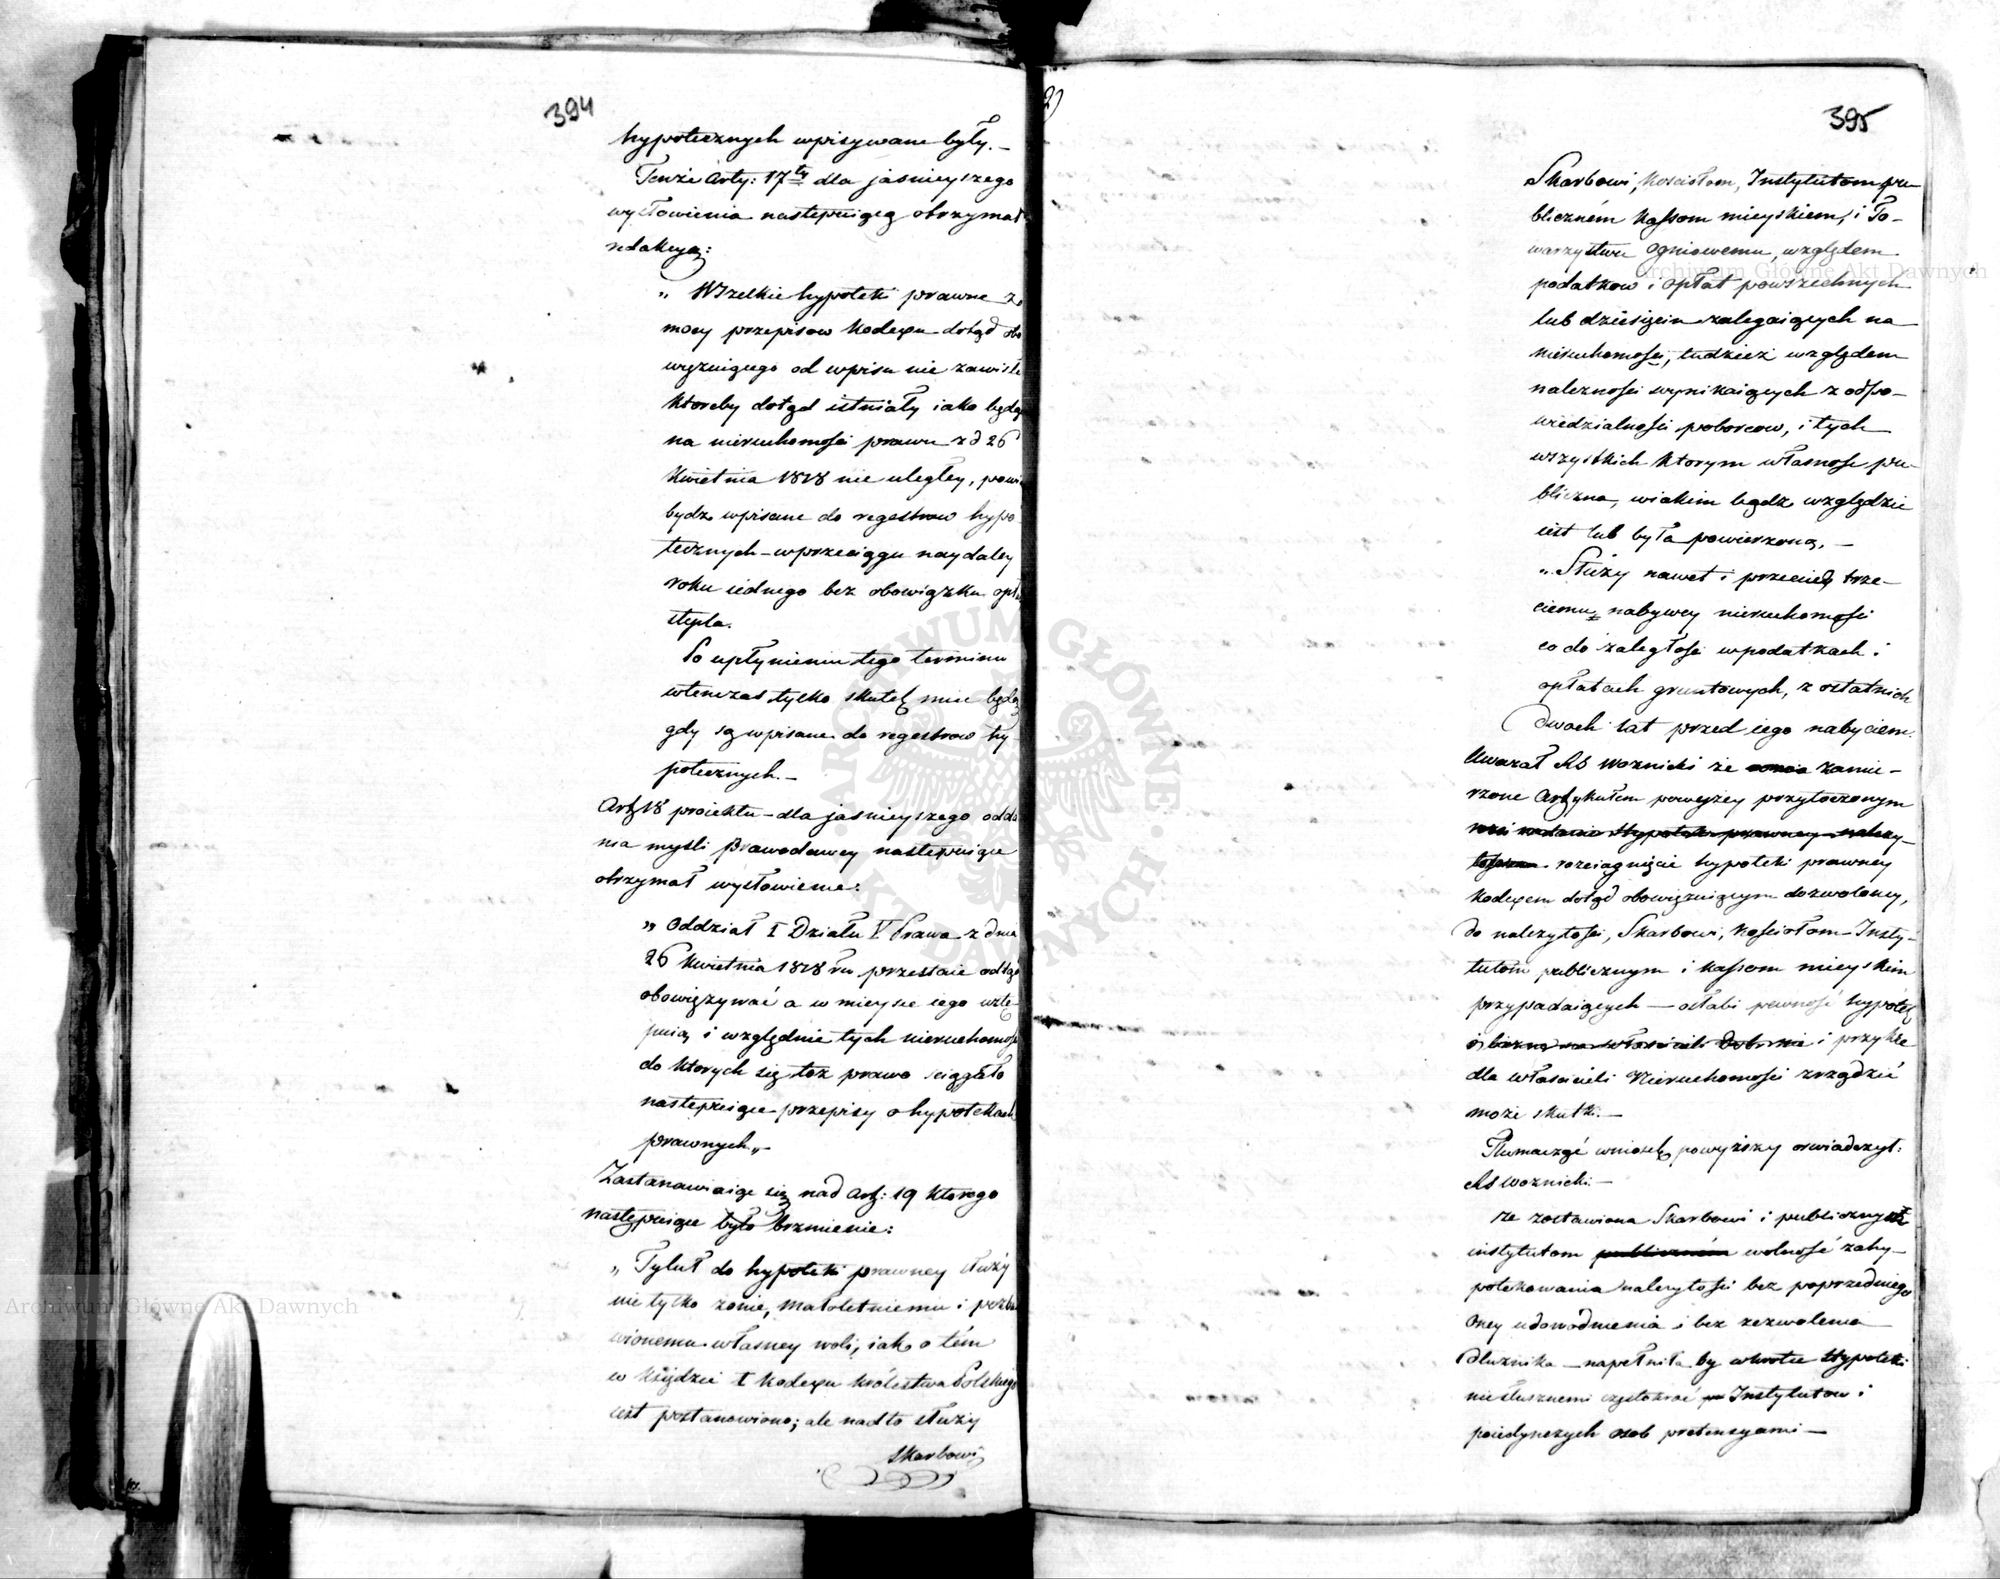 394
hypotecznych wpisywane były. –
Tenże Arty: 17ty dla jasnieyszego
wysłowienia następuiącą otrzymał
redakcyą:
„ Wszelkie hypoteki prawne z
mocy przepisow Kodexu dotąd obo
wązuiącego od wpisu nie zawisłe
ktoreby dotąd istniały iako będąc
na nieruchomości prawu z d 26
Kwietnia 1818 nie uległey, powin
bydź wpisane do regestrow hypo
tecznych – w przeciągu naydaley
roku iednego bez obowiązku opła
stępla.
Po upłynieniu tego terminu
wtenczas tylko skutek miec będą
gdy są wpisane do regestrow hy
potecznych. –
Art 18 proiektu – dla jasnieyszego odda
nia myśli Prawodawcy następuiące
otrzymał wysłowienie:
„ Oddział I Działu V Prawa z dnia
26 Kwietnia 1818 ru przestaie odtąd
obowiązywać a w mieysce iego wstę-
puią i względnie tych nieruchomości
do ktorych się toż prawo sciągało
następuiące przepisy o hypotekach
prawnych„ –
Zastanawiaiąc się nad Art: 19 ktorego
następuiące było brzmienie:
„ Tytuł do hypoteki prawney służy
nie tylko żonie, małoletniemu i pozba
wionemu własney woli, iak o tém
w Księdze I Kodexu Królestwa Polskiego
iest postanowiono; ale nadto służy
Skarbowi
395
Skarbowi, Kosciołom, Instytutom pu-
bliczném Kassom mieyskiem, i To-
warzystwu Ogniowemu, względem
podatkow i opłat powszechnych
lub dziesięcin zalegaiących na
nieruchomości, tudzież względem
należności wynikaiących z odpo-
wiedzialności poborcow, i tych
wszystkich ktorym własnosc pu-
bliczna, w iakim bądz względzie
iest lub była powierzoną. –
„ Służy nawet i przeciw trze-
ciemu nabywcy nieruchomości
co do zaległosci w podatkach i
opłatach gruntowych, z ostatnich
dwoch lat przed iego nabyciem.
Uważał RS Woznicki że zamie-
rzone Artykułem powyżey przytoczonym
rozciągnięcie hypoteki prawney
Kodexem dotąd obowięzuiącym dozwoloney,
do należytości, Skarbowi, Kościołom – Insty-
tutóm publicznym i Kassom mieyskim
przypadaiących — osłabi pewność hypotek
i przykre
dla właścicieli Nieruchomości zrządzić
może skutki. –
Tłumacząc wniosek powyższy oswiadczył:
RS Woznicki. –
że zostawiona Skarbowi i publicznych
instytutom publiczném wolność zahy-
potekowania należytości bez poprzedniego
oney udowodnienia i bez zezwolenia
dłużnika – napełniła by wkrotce Hypoteki
niesłusznemi częstokroć Instytutow i
poiedynczych osob pretensyami —